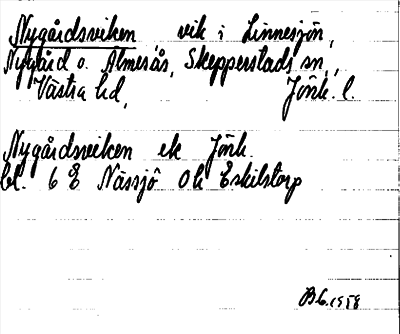 Nygårdsviken vik i Linnesjön,
Nygård o. Almesås, Skepperstads sn,
Västra hd, Jönk. l.
Nygårdsviken ek Jönk.
bl. 6 E Nässjö 0 h Eskilstorp
1958